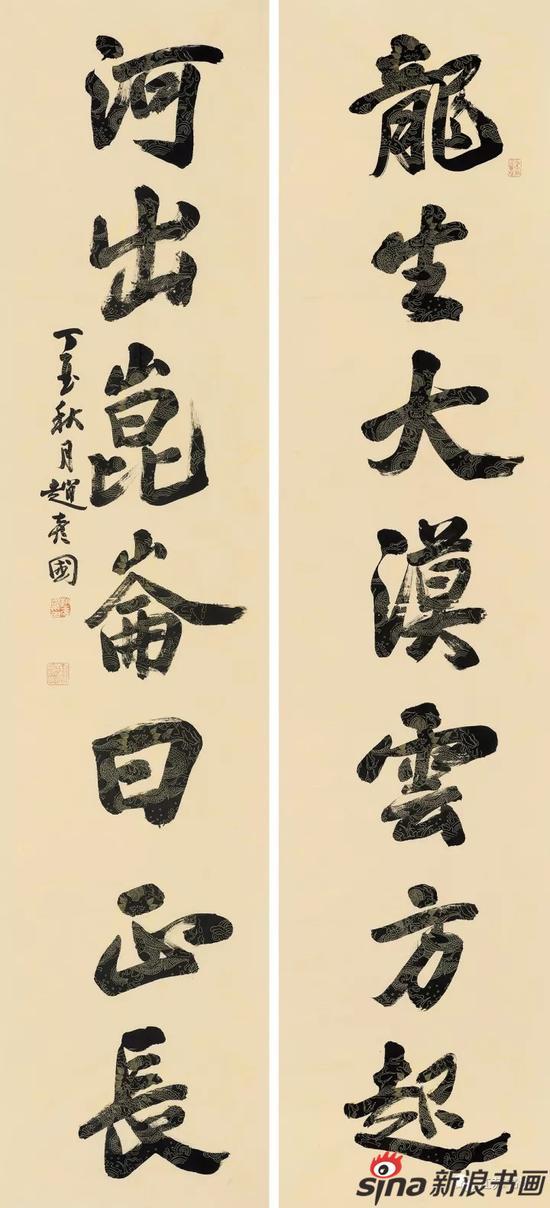 龍生大漠雲方起
河出崑崙日正長
丁秋月趙彥國
sina新浪书画